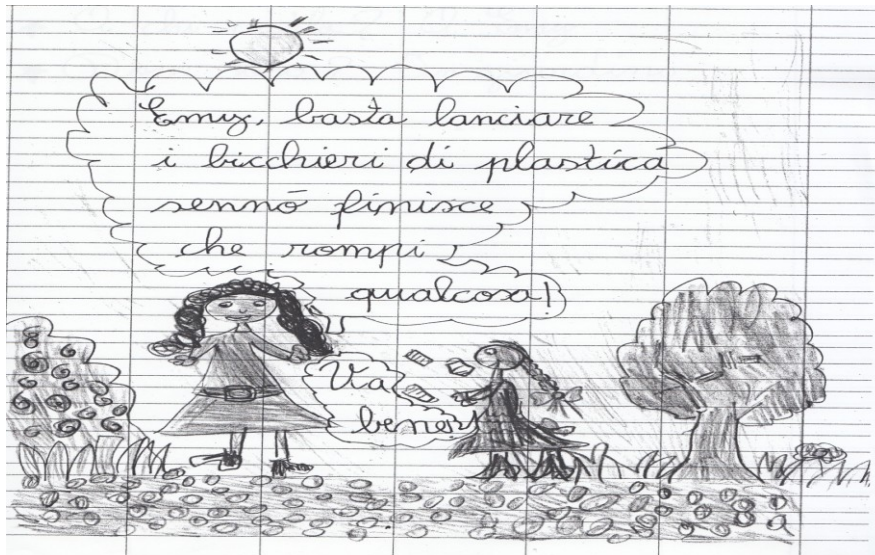 Emy, basta lanciare
i bicchieri di plastica
sennò finisce
che rompi
qualcosa!
Va
bene!